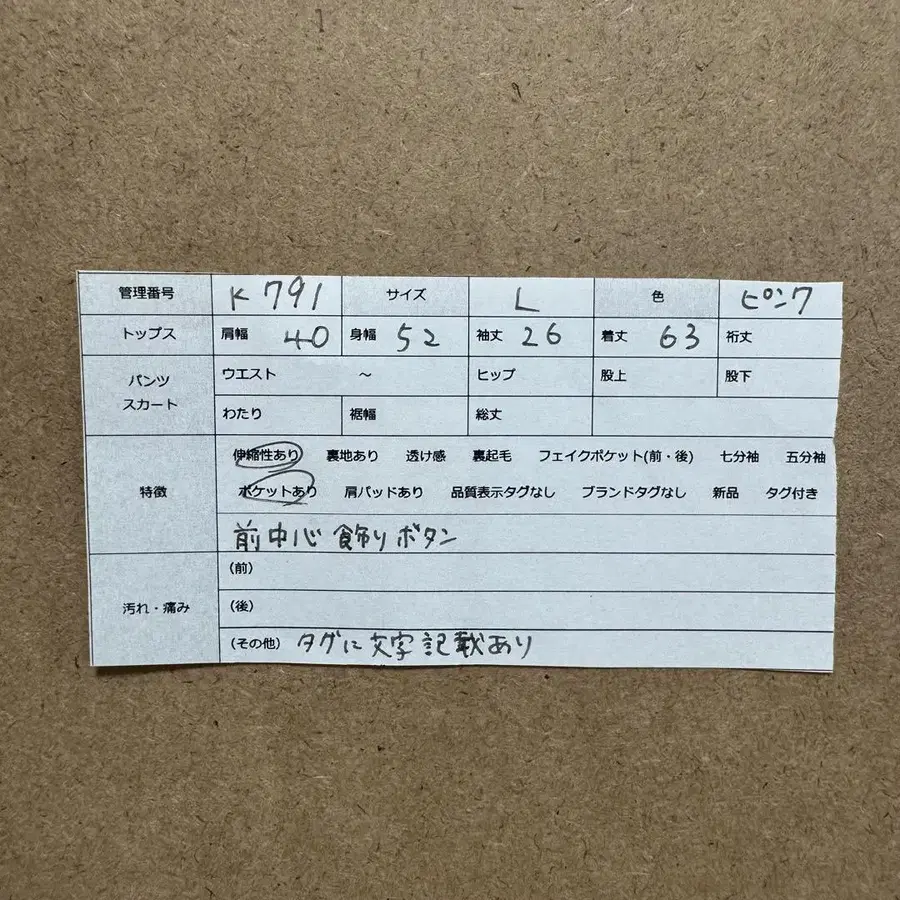 管理番号 K791 サイズ L 色 ピンク
トップス 肩幅 40 身幅 52 袖丈 26 着丈 63 裄丈
パンツ スカート ウエスト ～ ヒップ 股上 股下
わたり 裾幅 総丈
特徴 伸縮性あり 裏地あり 透け感 裏起毛 フェイクポケット(前・後) 七分袖 五分袖
ポケットあり 肩パッドあり 品質表示タグなし ブランドタグなし 新品 タグ付き
前中心 飾りボタン
汚れ・痛み (前)
(後)
(その他) タグに文字記載あり